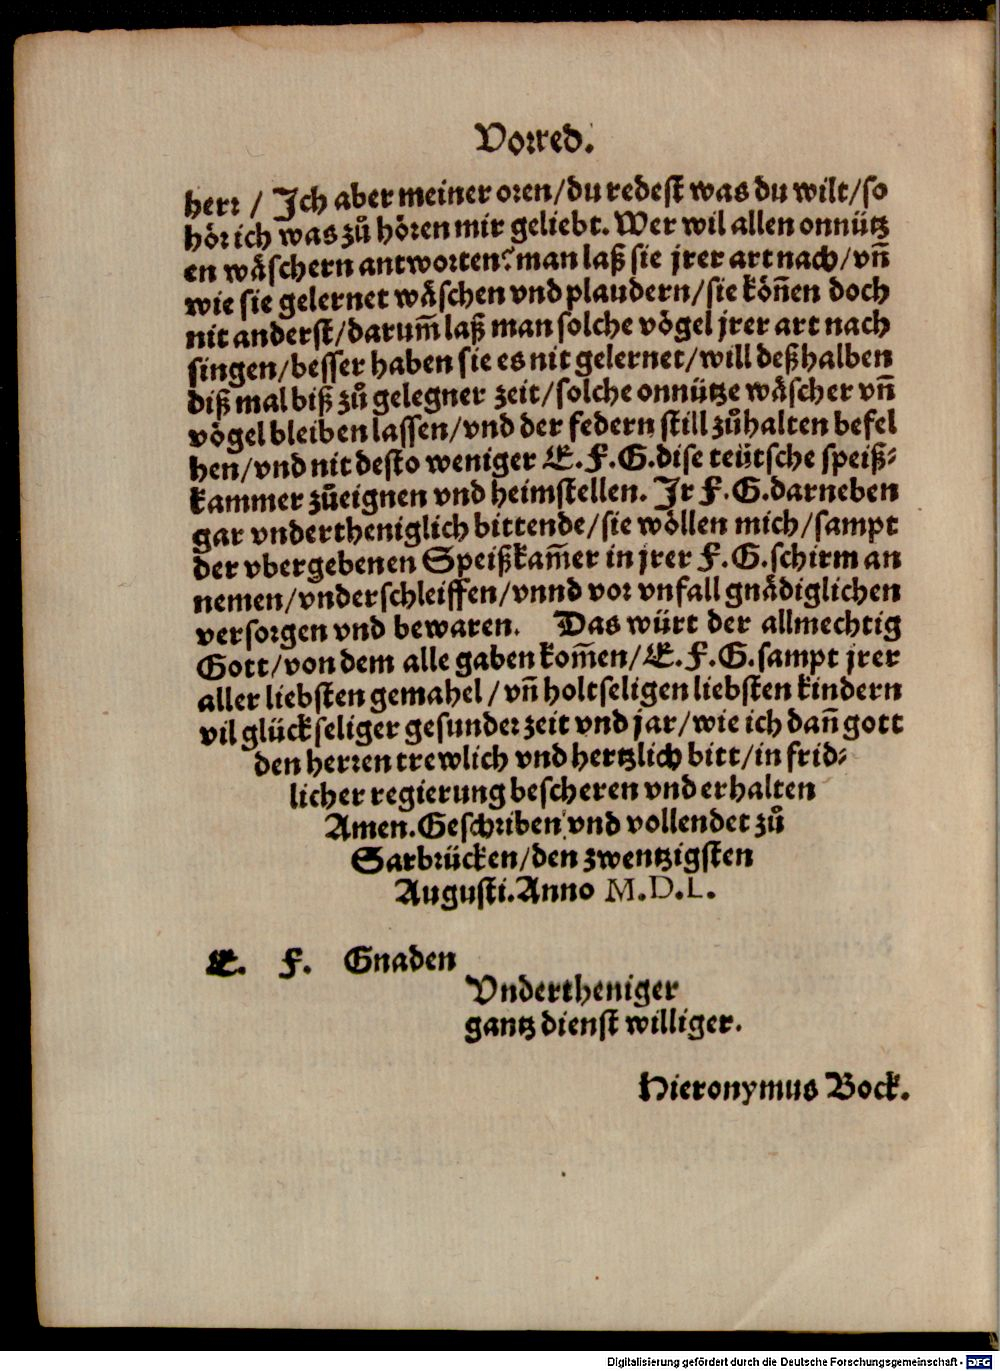 Vorred.
herr / Ich aber meiner oren/du redest was du wilt/so
hör ich was zů hören mir geliebt. Wer wil allen onnütz
en wäschern antworten? man laß sie jrer art nach/vñ
wie sie gelernet wäschen vnd plaudern/sie köñen doch
nit anderst/darum̃ laß man solche vögel jrer art nach
singen/besser haben sie es nit gelernet/will deßhalben
diß mal biß zů gelegner zeit/solche onnütze wäscher vñ
vögel bleiben lassen/vnd der federn still zůhalten befel
hen/vnd nit desto weniger E. F. G. dise teütsche speiß⸗
kammer zůeignen vnd heimstellen. Jr F. G. darneben
gar vndertheniglich bittende/sie wöllen mich/sampt
der vbergebenen Speißkam̃er in jrer F. G. schirm an
nemen/vnderschleiffen/vnnd vor vnfall gnädiglichen
versorgen vnd bewaren. Das würt der allmechtig
Gott/von dem alle gaben kom̃en/E. F. G. sampt jrer
aller liebsten gemahel / vñ holtseligen liebsten kindern
vil glückseliger gesunder zeit vnd jar/wie ich dañ gott
den herren trewlich vnd hertzlich bitt/in frid⸗
licher regierung bescheren vnd erhalten
Amen. Geschriben vnd vollendet zů
Sarbrücken/den zwentzigsten
Augusti. Anno M.D.L.
E. F. Gnaden
Vndertheniger
gantz dienst williger.
Hieronymus Bock.
Digitalisierung gefördert durch die Deutsche Forschungsgemeinschaft - DFG